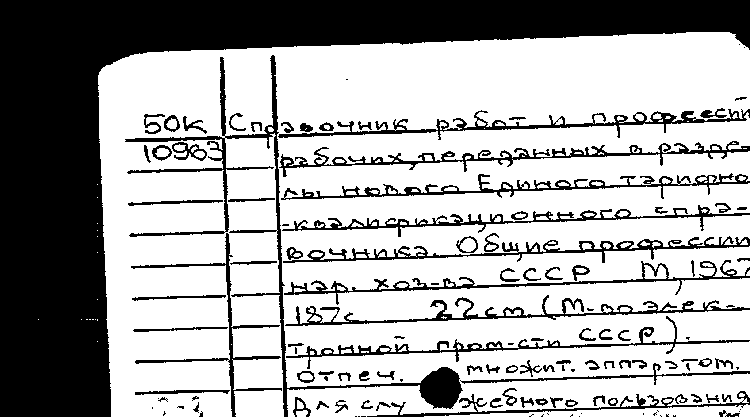 50К Справочник работ и профессий
10963 рабочих, переданных в разде-
лы нового Единого тарифно
-квалификационного спра-
вочника. Общие профессии
нар. хоз-ва СССР М, 1967
187с 22 см. (М-во элек-
тронной пром-сти СССР).
Отпеч. множит. аппаратом.
Для служебного пользования